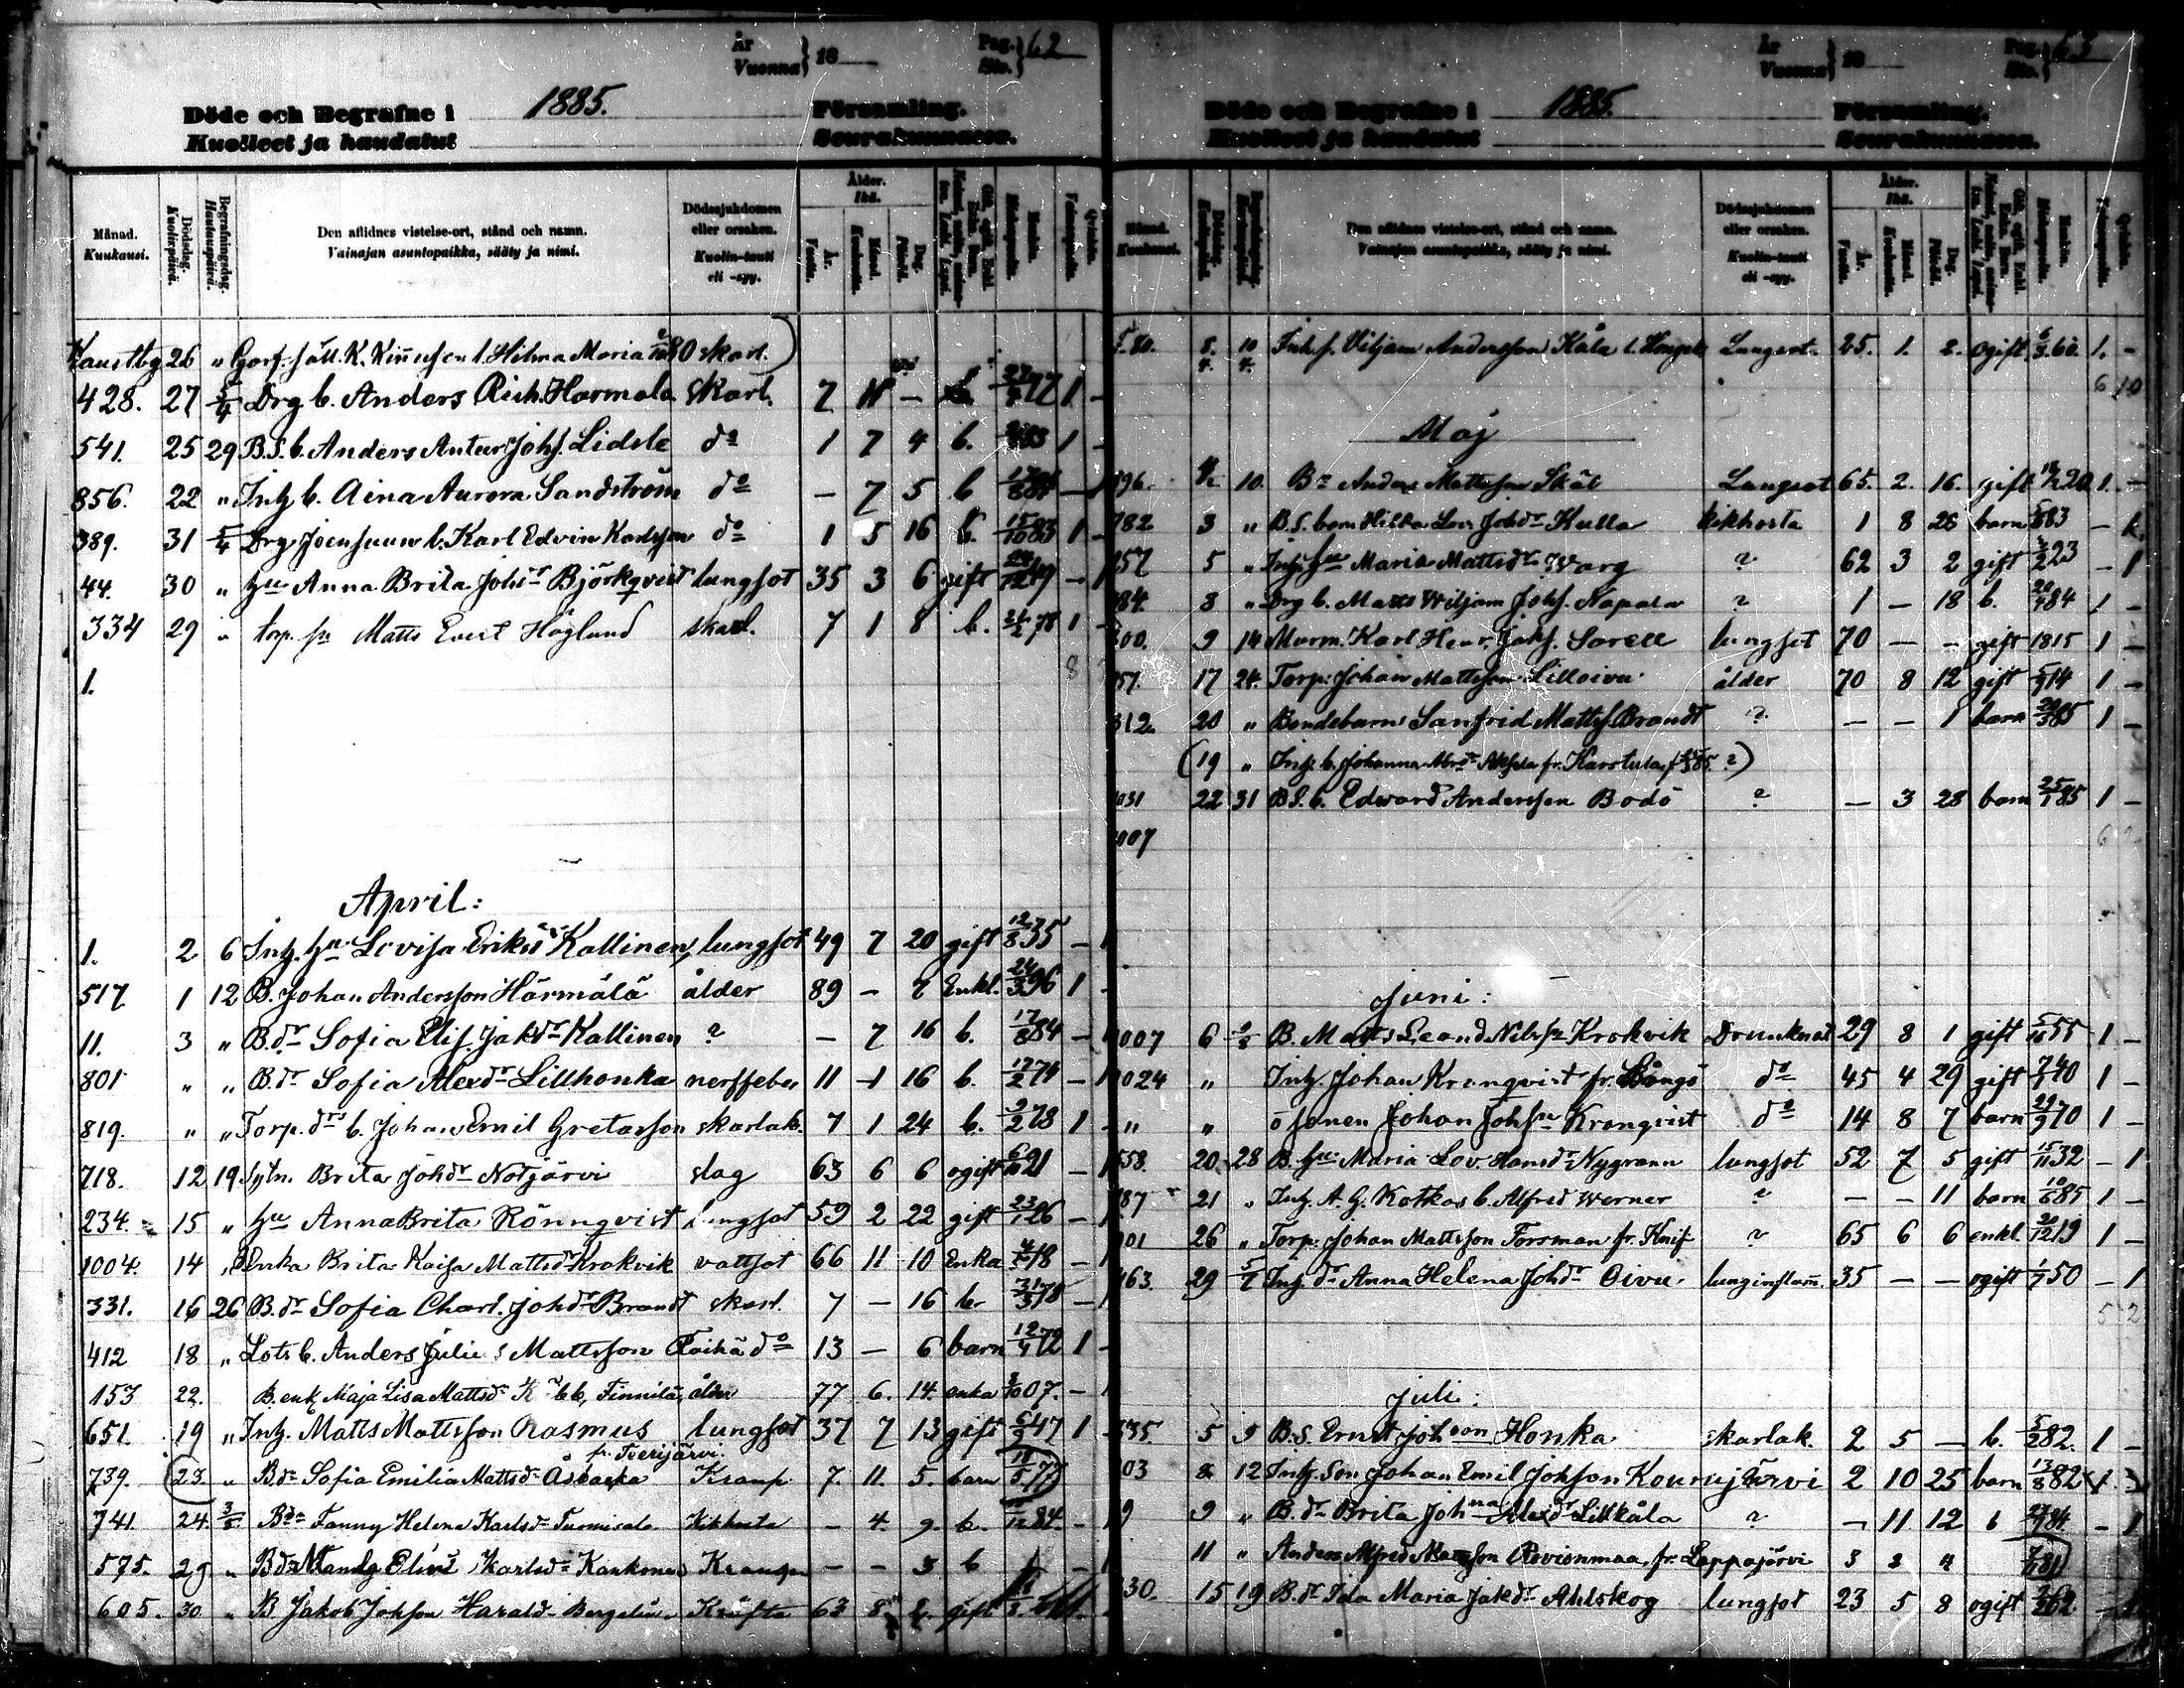 År
Vuonna } 18
Pag.
Siv. } 62
Döde och Begrafne i 1885. Församling.
Kuolleet ja haudatut Seurakunnassa.
Månad. Kuukausi.
Dödsdag. Kuolinpäivä.
Begrafningsdag. Hautauspäivä.
Den aflidnes vistelse-ort, stånd och namn.
Vainajan asuntopaikka, sääty ja nimi.
Dödssjukdomen eller orsaken.
Kuolin-tauti eli -syy.
Ålder. Ikä.
År. Vuotta.
Månad. Kuukautta.
Dag. Päivää.
Mankön. Miehenpuolta.
Qvinkön. Vaimonpuolta.
Kaustby 26 " K. Kinnusen b. Hilma Maria skarl.
428. 27 5/4 Drg b. Anders Rich. Harmala skarl. 7 — 1 –
541. 25 29 B.S. b. Anders Anter Johs. Lidsle do 1 7 4 b. 1 –
856. 22 " Inh b. Aina Aurora Sandström do – 7 5 b – 1
389. 31 5/4 Drg Joensuun b. Karl Edvin Karlsson do 1 5 16 b. 15/10 83 1 –
44. 30 " hu Anna Brita Johsdr Björkqvist lungsot 35 3 6 gift 24/12 49 – 1
334 29 " torp. sn Matts Evert Höglund skarl. 7 1 8 b. 21/2 78 1 –
1. 8
April:
1. 2 6 Inh. hu Lovisa Eriksdr Kallinen, lungsot 49 7 20 gift 12/8 35 – 1
517 1 12 B. Johan Andersson Härmälä ålder 89 – 7 Enkl. 24/3 96 1 –
11. 3 " B.dr Sofia Elis. Jakdr Kallinen ? – 7 16 b. 17/8 84 –
801 " " B.dr Sofia Alexdr Lillhonka nerffeber 11 1 16 b. 17/2 74 – 1
819. " " Torp. drs b. Johan Emil Gretasson skarlak. 7 1 24 b. 9/2 78 1 –
718. 12 19. Brita Johdr Notjärvi slag 63 6 6 ogift 6/10 21 – 1
234. 15 " hu Anna Brita Rönnqvist lungsot 59 2 22 gift 23/1 26 – 1
1004. 14 " Benka Brita Kaisa Mattsdr Krokvik vattsot 66 11 10 enka 4/5 18 – 1
331. 16 26 B.dr Sofia Charl. Johdr Brandt skarl. 7 – 16 b. 31/3 78 – 1
412 18 " Lots b. Anders Julius Mattsson Taihä do 13 – 6 barn 12/4 72 1 –
153 22. B. enk. Maja Lisa Mattsdr Finnilä, ålder 77 6. 14. enka 8/10 07. – 1
651. 19 " Inh. Matts Mattsson Rasmus lungsot 37 7 13 gift 6/9 47 1 –
fr. Teerijärvi
739. 23. " B.dr Sofia Emilia Mattsdr Åsbacka Kramp. 7. 11. 5. barn 18/5 77
741. 24. 3/5 Bdr Fanny Helena Karlsdr Tunnisalo Kikhosta – 4. 9. b. 84. –
575. 29 " Bdr Karlsdr Kramp – – 3 b – 1
605. 30 " B Jakob Johsson Harald Bergelin Kräfta 63 8 2 gift
År
Vuonna } 18
Pag.
Siv. } 63
Döde och Begrafne i 1885. Församling.
Kuolleet ja haudatut Seurakunnassa.
Månad. Kuukausi.
Den aflidnes vistelse-ort, stånd och namn.
Vainajan asuntopaikka, sääty ja nimi.
Dödssjukdomen eller orsaken.
Kuolin-tauti eli -syy.
Ålder. Ikä.
År. Vuotta.
Månad. Kuukautta.
Dag. Päivää.
Inh. s. Viljam Andersson Kåla Lungsot. 25. 1. 2. ogift. 6/3 60. 1. –
6 10
Maj
896. 10. Bn Anders Mattsson Skäl Lungsot 65. 2. 16. gift 20 1. –
782 3 " B.S. barn Hilda Lov. Johdr Kulla Kikhosta 1 8 26 barn 5/8 83 –
757 5 " Inh. hu Maria Mattsdr Warg ? 62 3 2 gift 3/2 23 – 1
84. 8 " Drg b. Matts Wiljam Johs. Kapala ? 1 – 18 b. 20/4 84 1 –
300. 9 14 Murm. Karl Henr. Jaks. Sorell lungsot 70 – – gift 1815 1 –
957. 17 24. Torp: Johan Mattsson Lilloivu ålder 70 8 12 gift 5/9 14 1 –
312. 20 " Bondebarn Sanfrid Mattss. Brandt ? – – 1 barn 20/5 85 1 –
(19 " Inh. b. Johanna Abrdr Akfela fr. Karstula, f 85. ?)
1031 22 31 B.S. b. Edward Andersson Bodö ? – 3 28 barn 25/1 85 1 –
1007 6 2
Juni:
1007 6 B. Matts Leand. Nilssn Krokvik Drunknat 29 8 1 gift 5/10 55 1 –
1024 " Inh. Johan Kronqvist fr. Långö do 45 4 29 gift 7/1 40 1 –
" " o sonen Johan Johssn Kronqvist do 14 8 7 barn 29/9 70 1 –
558. 20. 28 B. hu Maria Lov. Hansdr Nygrann lungsot 52 7 5 gift 15/11 32 – 1
787 21 " Inh. A. G. Kotkas b. Alfred Werner ? – – 11 barn 10/6 85 1 –
901 26 " Torp. Johan Mattsson Forsman fr. Knif ? 65 6 6 enkl. 20/12 19 1 –
463. 29 5/7 Inh. dr Anna Helena Johdr Oivu. lunginflam. 35 – – ogift 1/7 50 – 1
5 2
Juli:
735. 5 9 B.S. Ernst Johsson Honka skarlak. 2 5 – b. 5/2 82. 1 –
03 8 12 Inh. Son Johan Emil Johsson Kourujärvi 2 10 25 barn 13/8 82 1.
9 9 " B. dr Brita Johna Alexdr Lillkåla ? – 11 12 b 27/7 84. – 1
11 " Anders Alfred Mattsson Rovionmaa, fr. Lappajärvi 3 2 4 81
330. 15 19 B.dr Ida Maria Jakdr Ahlskog lungsot 23 5 8 ogift 7/2 62